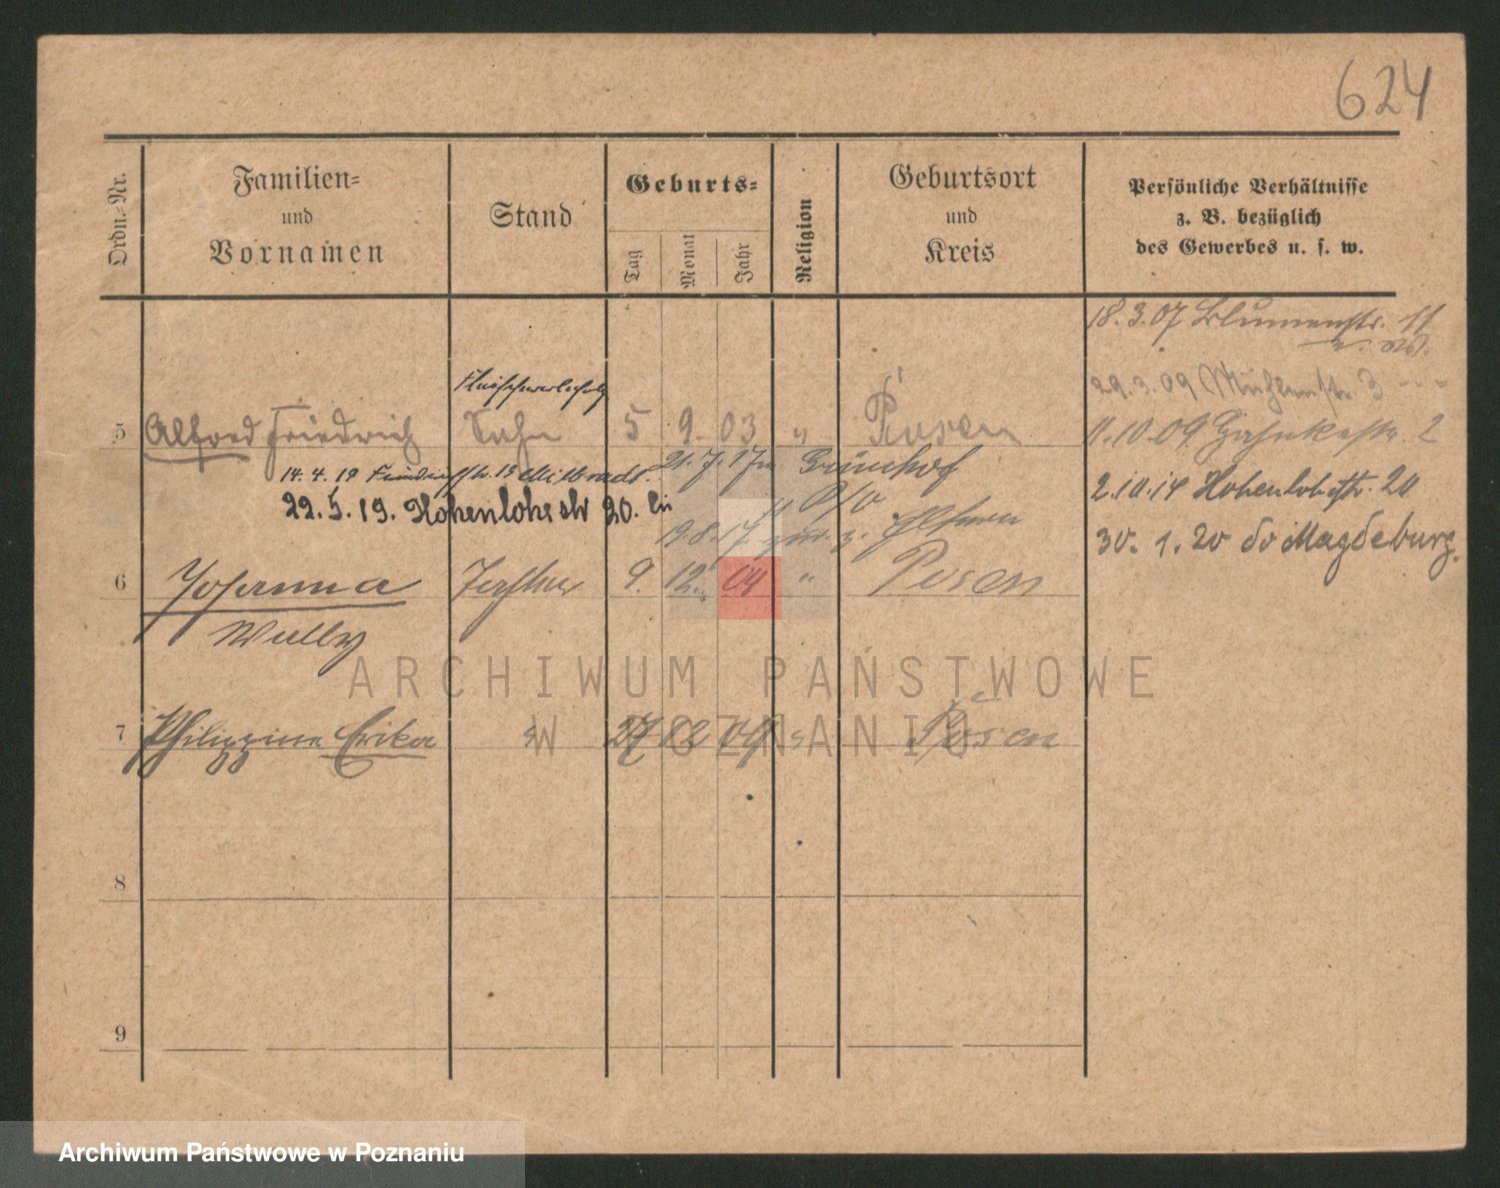 624
Ordn.-Nr.
Familien-
und
Vornamen
Stand
Geburts-
Tag
Monat
Jahr
Religion
Geburtsort
und
Kreis
Persönliche Verhältnisse
z. B. bezüglich
des Gewerbes u. s. w.
18.3.07 Blumenstr. 11
29.3.09 Mühlenstr. 3
5 Alfred Friedrich Sohn 5 9. 03 " Posen
11.10.09 2
14.4.19 13
21.7.17 Grünhof
2.10.14 Hohenlohestr. 20
22.5.19. Hohenlohestr 20.
19.8.17
30. 1. 20 Magdeburg.
6 Johanna Tochter 9. 12. 04 " Posen
Wally
ARCHIWUM PAŃSTWOWE
W POZNANIU
7 Philippine Erika 27 12 09 Posen
8
9
Archiwum Państwowe w Poznaniu